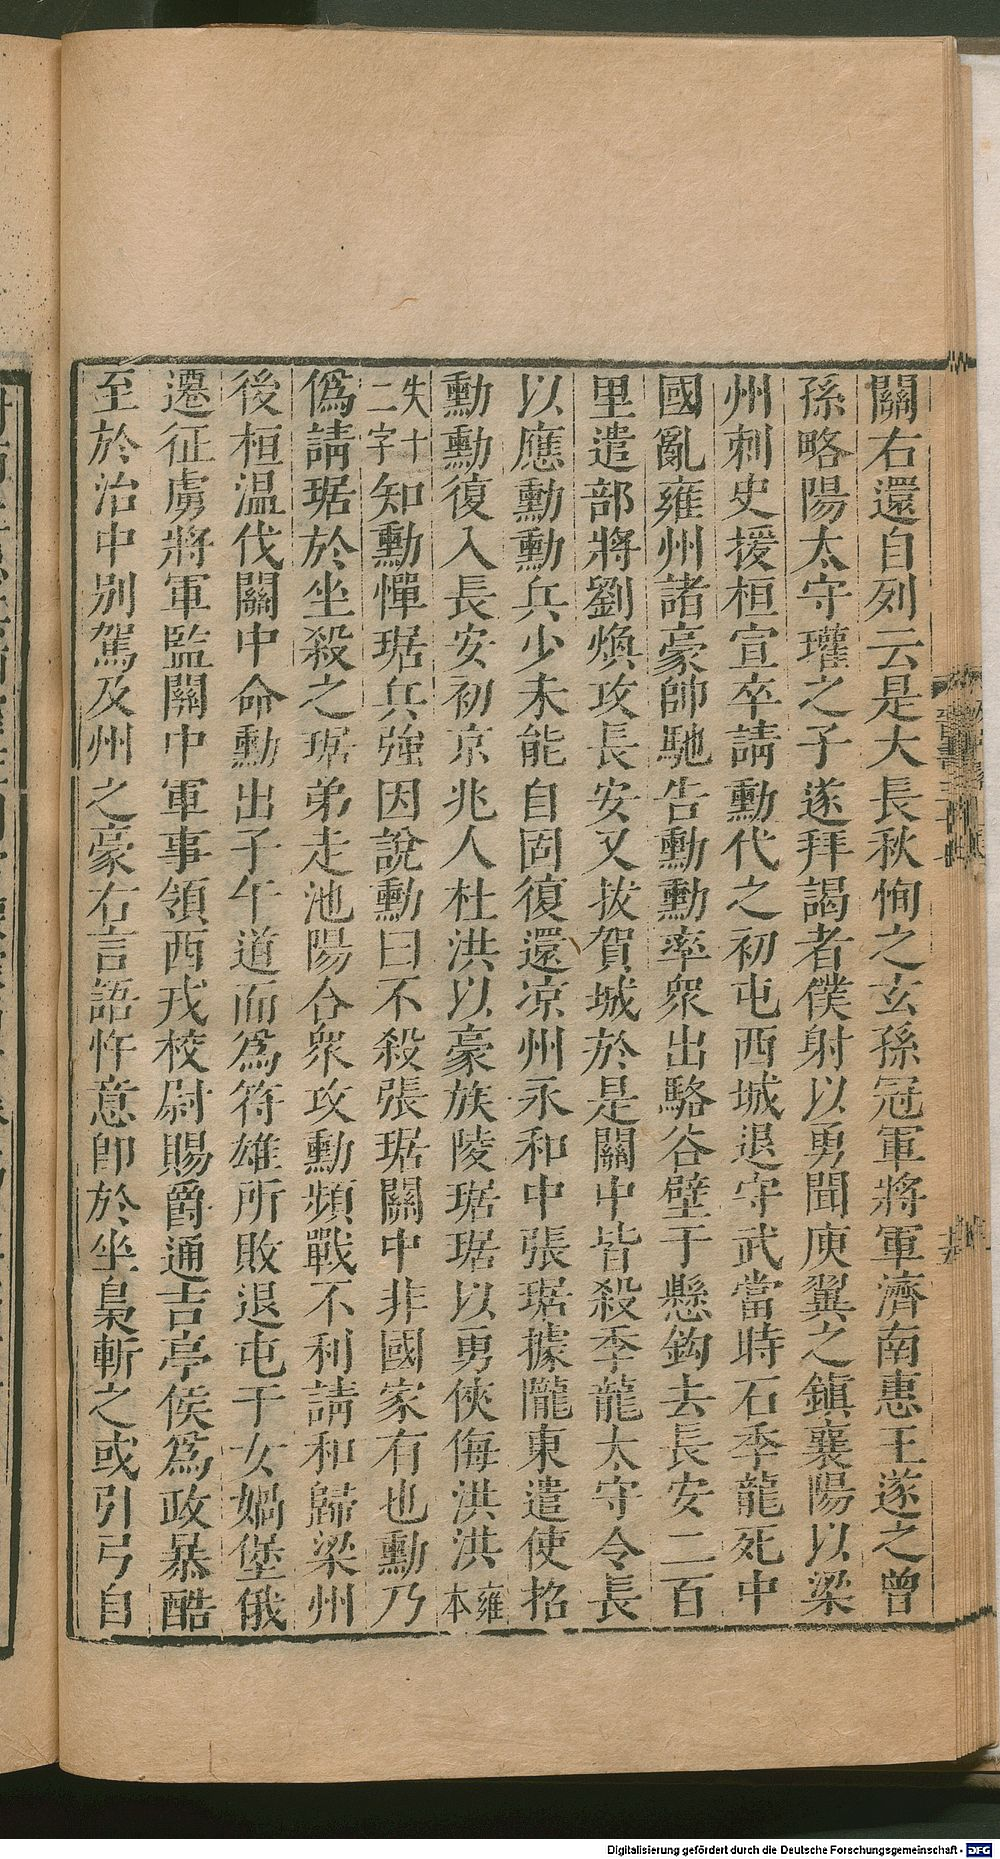 關右還自列云是大長秋恂之玄孫冠軍將軍濟南惠王遂之曾
孫略陽太守瓘之子遂拜謁者僕射以勇聞庾翼之鎮襄陽以梁
州刺史援桓宣卒請勳代之初屯西城退守武當時石季龍死中
國亂雍州諸豪帥馳告勳勳率眾出駱谷壁于懸鈎去長安二百
里遣部將劉煥攻長安又拔賀城於是關中皆殺季龍太守令長
以應勳勳兵少未能自固復還凉州永和中張琚據隴東遣使招
勳勳復入長安初京兆人杜洪以豪族陵琚琚以勇俠侮洪洪雍本
失十二字知勳憚琚兵強因說勳曰不殺張琚關中非國家有也勳乃
僞請琚於坐殺之琚弟走池陽合眾攻勳頻戰不利請和歸梁州
後桓温伐關中命勳出子午道而爲符雄所敗退屯于女媧堡俄
遷征虜將軍監關中軍事領西戎校尉賜爵通吉亭侯爲政暴酷
至於治中別駕及州之豪右言語忤意卽於坐梟斬之或引弓自
Digitalisierung gefördert durch die Deutsche Forschungsgemeinschaft - DFG